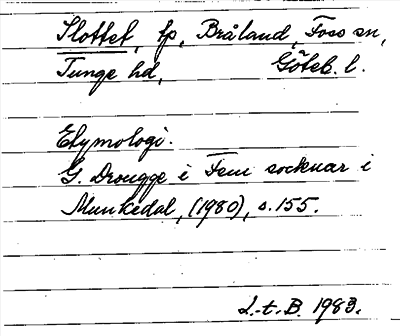 Slottet, fp, Bråland, Foss sn,
Tunge hd, Göteb. l.
Etymologi.
G. Drougge i Fem socknar i
Munkedal, (1980), s. 155.
L.-t. B. 1983.